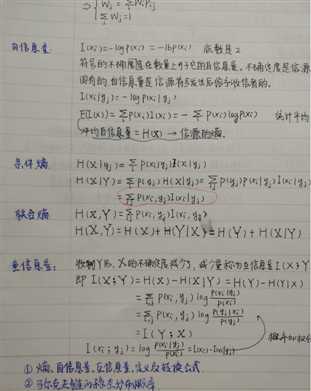 Wⱼ = ΣWᵢPᵢⱼ
ΣWⱼ=1
自信息量 I(xᵢ)=-logP(xᵢ) = -lbp(xᵢ) 底数是2
符号的不确定度在数量上等于它的自信息量。不确定度是信源
固有的,自信息量是信源符号发出后给予收信者的。
I(xᵢ|yⱼ)=-logP(xᵢ|yⱼ)
E(I(X))=ΣP(xᵢ)I(xᵢ)=-ΣP(xᵢ)logP(xᵢ) 统计平均
平均自信息量=H(X)→信源的熵
条件熵 H(X|yⱼ)=ΣP(xᵢ|yⱼ)I(xᵢ|yⱼ)
H(X|Y)=ΣP(yⱼ)H(X|yⱼ)=ΣP(yⱼ)P(xᵢ|yⱼ)I(xᵢ|yⱼ)
=ΣP(xᵢ,yⱼ)I(xᵢ|yⱼ)
联合熵 H(X,Y)=ΣP(xᵢ,yⱼ)I(xᵢ,yⱼ)
H(X,Y)=H(X)+H(Y|X)=H(Y)+H(X|Y)
互信息量: 收到Y后,X的不确定度减少了,减少量称为互信息量I(X;Y)
即 I(X;Y)=H(X)-H(X|Y)=H(Y)-H(Y|X)
=ΣP(xᵢ,yⱼ)log P(xᵢ|yⱼ)/P(xᵢ)
=ΣP(xᵢ,yⱼ)log P(yⱼ|xᵢ)/P(yⱼ)
=I(Y;X)
I(xᵢ;yⱼ)=log P(xᵢ|yⱼ)/P(xᵢ)=I(xᵢ)-I(xᵢ|yⱼ)
①熵、自信息量、互信息量,定义及转换公式